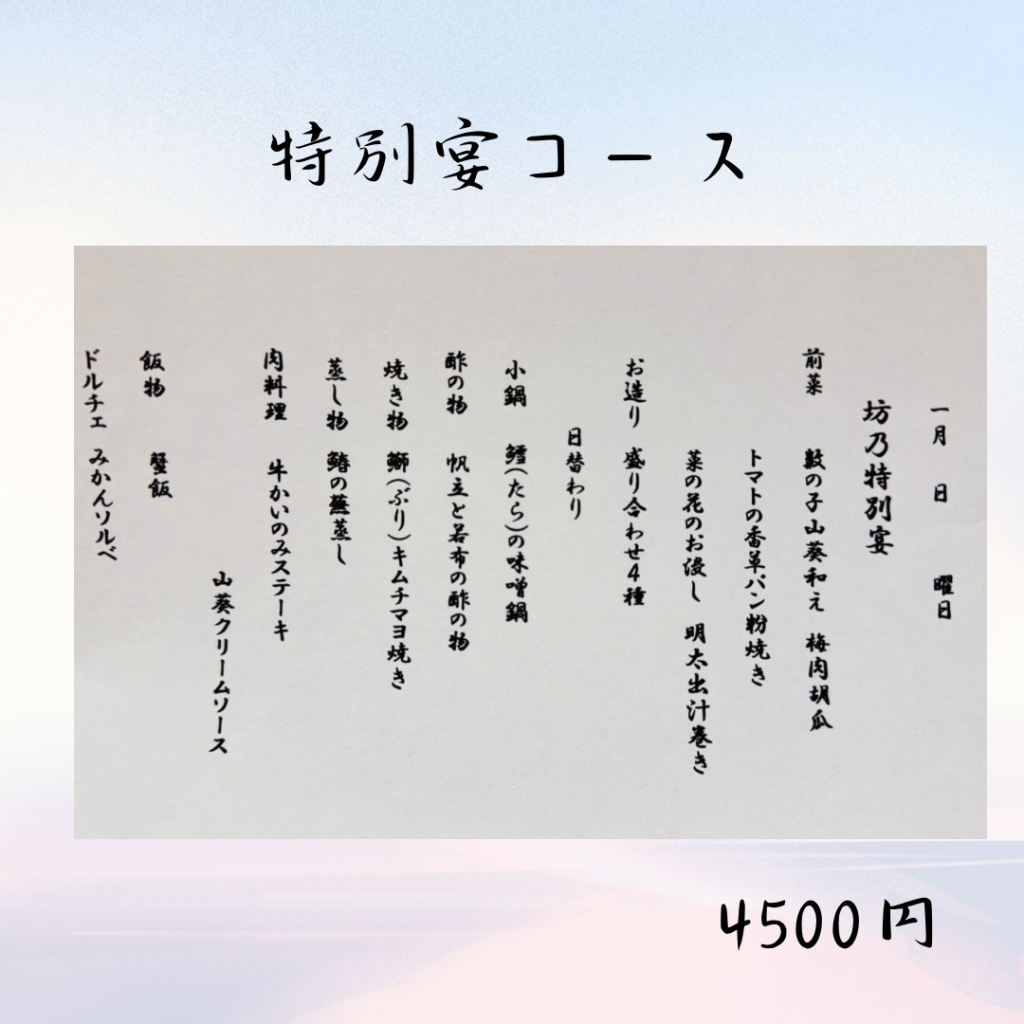 特別宴コース
一月　日　曜日
坊乃特別宴
前菜　数の子山葵和え　梅肉胡瓜
トマトの香草パン粉焼き
菜の花のお浸し　明太出汁巻き
お造り　盛り合わせ4種
日替わり
小鍋　鱈(たら)の味噌鍋
酢の物　帆立と若布の酢の物
焼き物　鰤(ぶり)キムチマヨ焼き
蒸し物　鰆の蕪蒸し
肉料理　牛かいのみステーキ
山葵クリームソース
飯物　蟹飯
ドルチェ　みかんソルベ
4500円